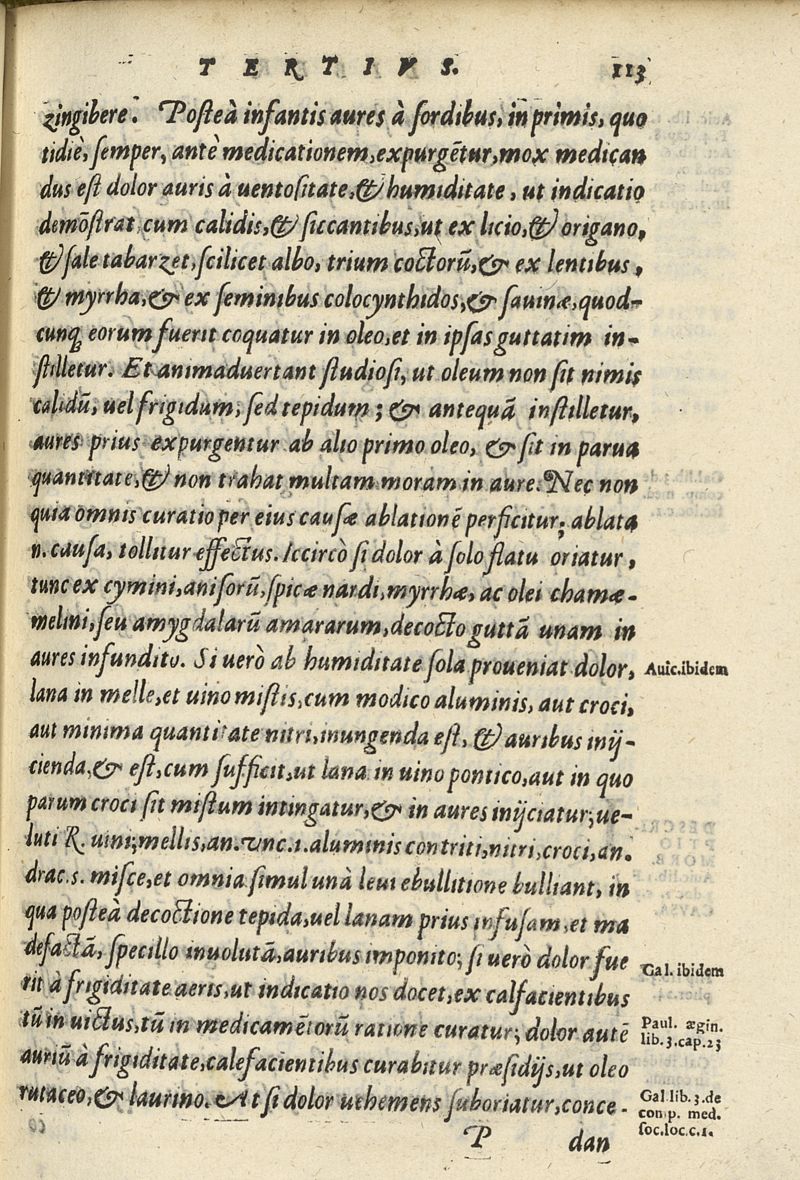 TERTIVS. 113
zingibere. Posteà infantis aures à sordibus, in primis, quo
tidiè, semper, antè medicationem, expurgētur, mox medican
dus est dolor auris à uentositate, & humiditate, ut indicatio
demōstrat cum calidis, & siccantibus, ut ex licio, & origano,
& sale tabarzet, scilicet albo, trium coctorū, & ex lentibus,
& myrrha, & ex seminibus colocynthidos, & sauinæ, quod-
cunq; eorum fuerit coquatur in oleo, et in ipsas guttatim in-
stilletur. Et animaduertant studiosi, ut oleum non sit nimis
calidū, uel frigidum, sed tepidum; & antequā instilletur,
aures prius expurgentur ab alio primo oleo, & sit in parua
quantitate, & non trahat multam moram in aure. Nec non
quia omnis curatio per eius causæ ablationē perficitur; ablata
n. causa, tollitur effectus. Iccircò si dolor à solo flatu oriatur,
tunc ex cymini, anisorū, spicæ nardi, myrrhæ, ac olei chamæ-
melini, seu amygdalarū amararum, decocto guttā unam in
aures infundito. Si uerò ab humiditate sola proueniat dolor,
Auic. ibidem
lana in melle, et uino mistis, cum modico aluminis, aut croci,
aut minima quantitate nitri, inungenda est, & auribus inij-
cienda, & est, cum sufficit, ut lana in uino pontico, aut in quo
parum croci sit mistum intingatur, & in aures inijciatur; ue-
luti R. uini; mellis, an. vnc. 1. aluminis contriti, nitri, croci, an.
drac. s. misce, et omnia simul unà leui ebullitione bulliant, in
qua posteà decoctione tepida, uel lanam prius infusam, et ma
defactā, specillo inuolutā, auribus imponito; si uerò dolor fue
Gal. ibidem
rit à frigiditate aeris, ut indicatio nos docet, ex calfacientibus
tū in uictus, tū in medicamētorū ratione curatur; dolor autē
Paul. ægin.
lib. 3. cap. 23
auriū à frigiditate, calefacientibus curabitur præsidijs, ut oleo
rutaceo, & laurino. At si dolor uehemens suboriatur, conce-
Gal lib. 3. de
comp. med.
soc. loc. c. 1.
P dan